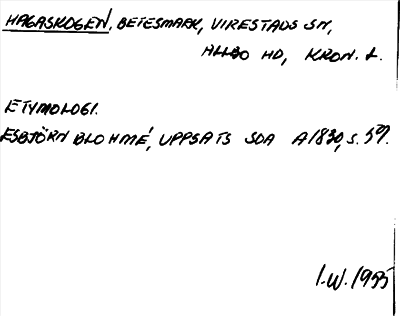 HAGASKOGEN, BETESMARK, VIRESTADS SN,
ALLBO HD, KRON. L.
ETYMOLOGI.
ESBJÖRN BLOHMÉ, UPPSATS SDA A1830, S. 59.
I.W. 1955